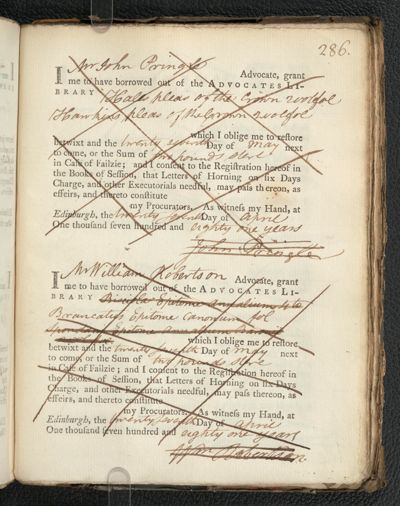 286.
I Mr John Pringle Advocate, grant
me to have borrowed out of the ADVOCATES LI-
BRARY Hales pleas of the Crown 2 vol fol
Hawkins pleas of the Crown 2 vol fol
which I oblige me to restore
betwixt and the twenty seventh Day of May next
to come, or the Sum of two pounds Ster:
in Case of Failzie; and I consent to the Registration hereof in
the Books of Session, that Letters of Horning on six Days
Charge, and other Executorials needful, may pass thereon, as
effeirs, and thereto constitute
my Procurators. As witness my Hand, at
Edinburgh, the twenty seventh Day of april
One thousand seven hundred and eighty one years
John Pringle
I Mr William Robertson Advocate, grant
me to have borrowed out of the ADVOCATES LI-
BRARY Epitome
Brancatys Epitome Canonum fol
Epitome
which I oblige me to restore
betwixt and the twenty seventh Day of May next
to come, or the Sum of two pounds Ster:
in Case of Failzie; and I consent to the Registration hereof in
the Books of Session, that Letters of Horning on six Days
Charge, and other Executorials needful, may pass thereon, as
effeirs, and thereto constitute
my Procurators. As witness my Hand, at
Edinburgh, the twenty seventh Day of april
One thousand seven hundred and eighty one years
Wm Robertson